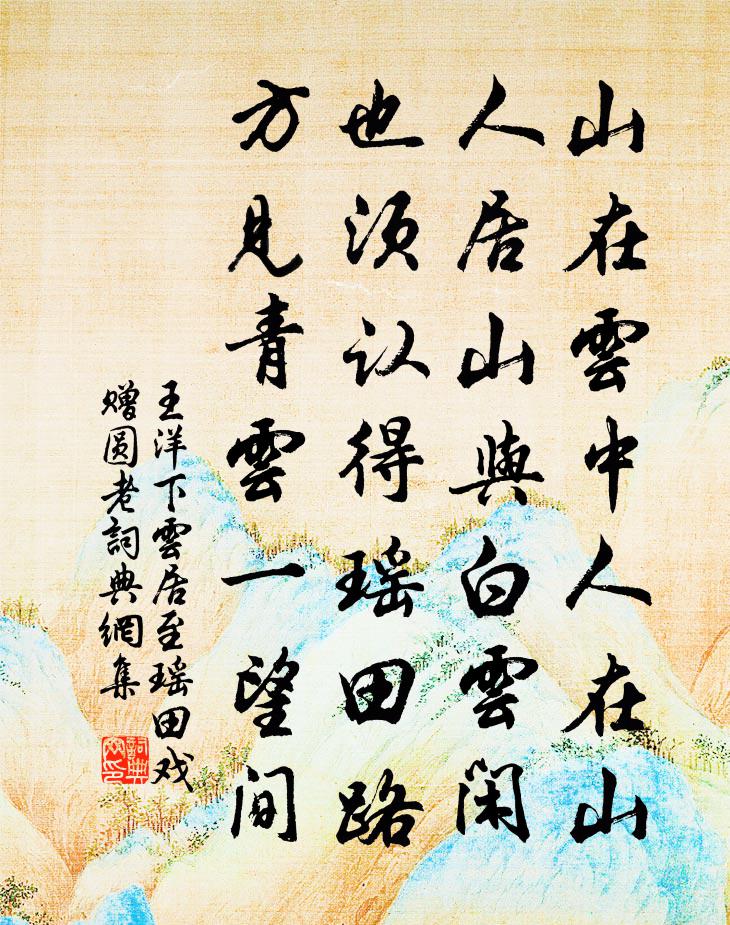 山在雲中人在山
人居山與白雲閑
也须认得瑶田路
方見青雲一望间
王洋下雲居至瑶田戏
赠圆老詞典網集
詞典